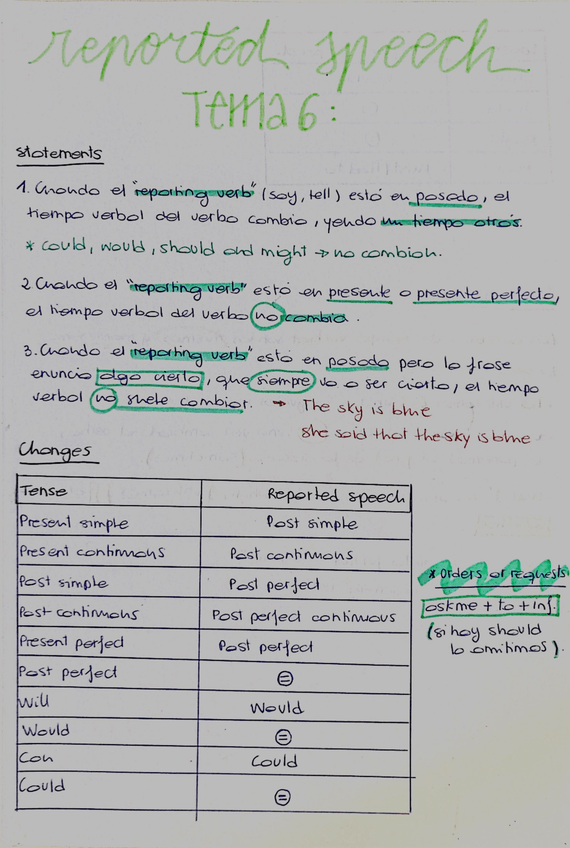 reported speech
Tema 6:
Statements
1. Cuando el "reporting verb" (say, tell) está en pasado, el
tiempo verbal del verbo cambia, yendo un tiempo atrás.
* could, would, should and might → no cambian.
2 Cuando el "reporting verb" está en presente o presente perfecto,
el tiempo verbal del verbo no cambia.
3. Cuando el "reporting verb" está en pasado pero la frase
enuncia algo cierto, que siempre va a ser cierto, el tiempo
verbal no suele cambiar. → The sky is blue
She said that the sky is blue
Changes
Tense Reported speech
Present simple Past simple
Present continuous Past continuous
Past simple Past perfect
Past continuous Past perfect continuous
Present perfect Past perfect
Past perfect =
Will Would
Would =
Can Could
Could =
* Orders or requests
ask me + to + inf.
(si hay should
lo omitimos).